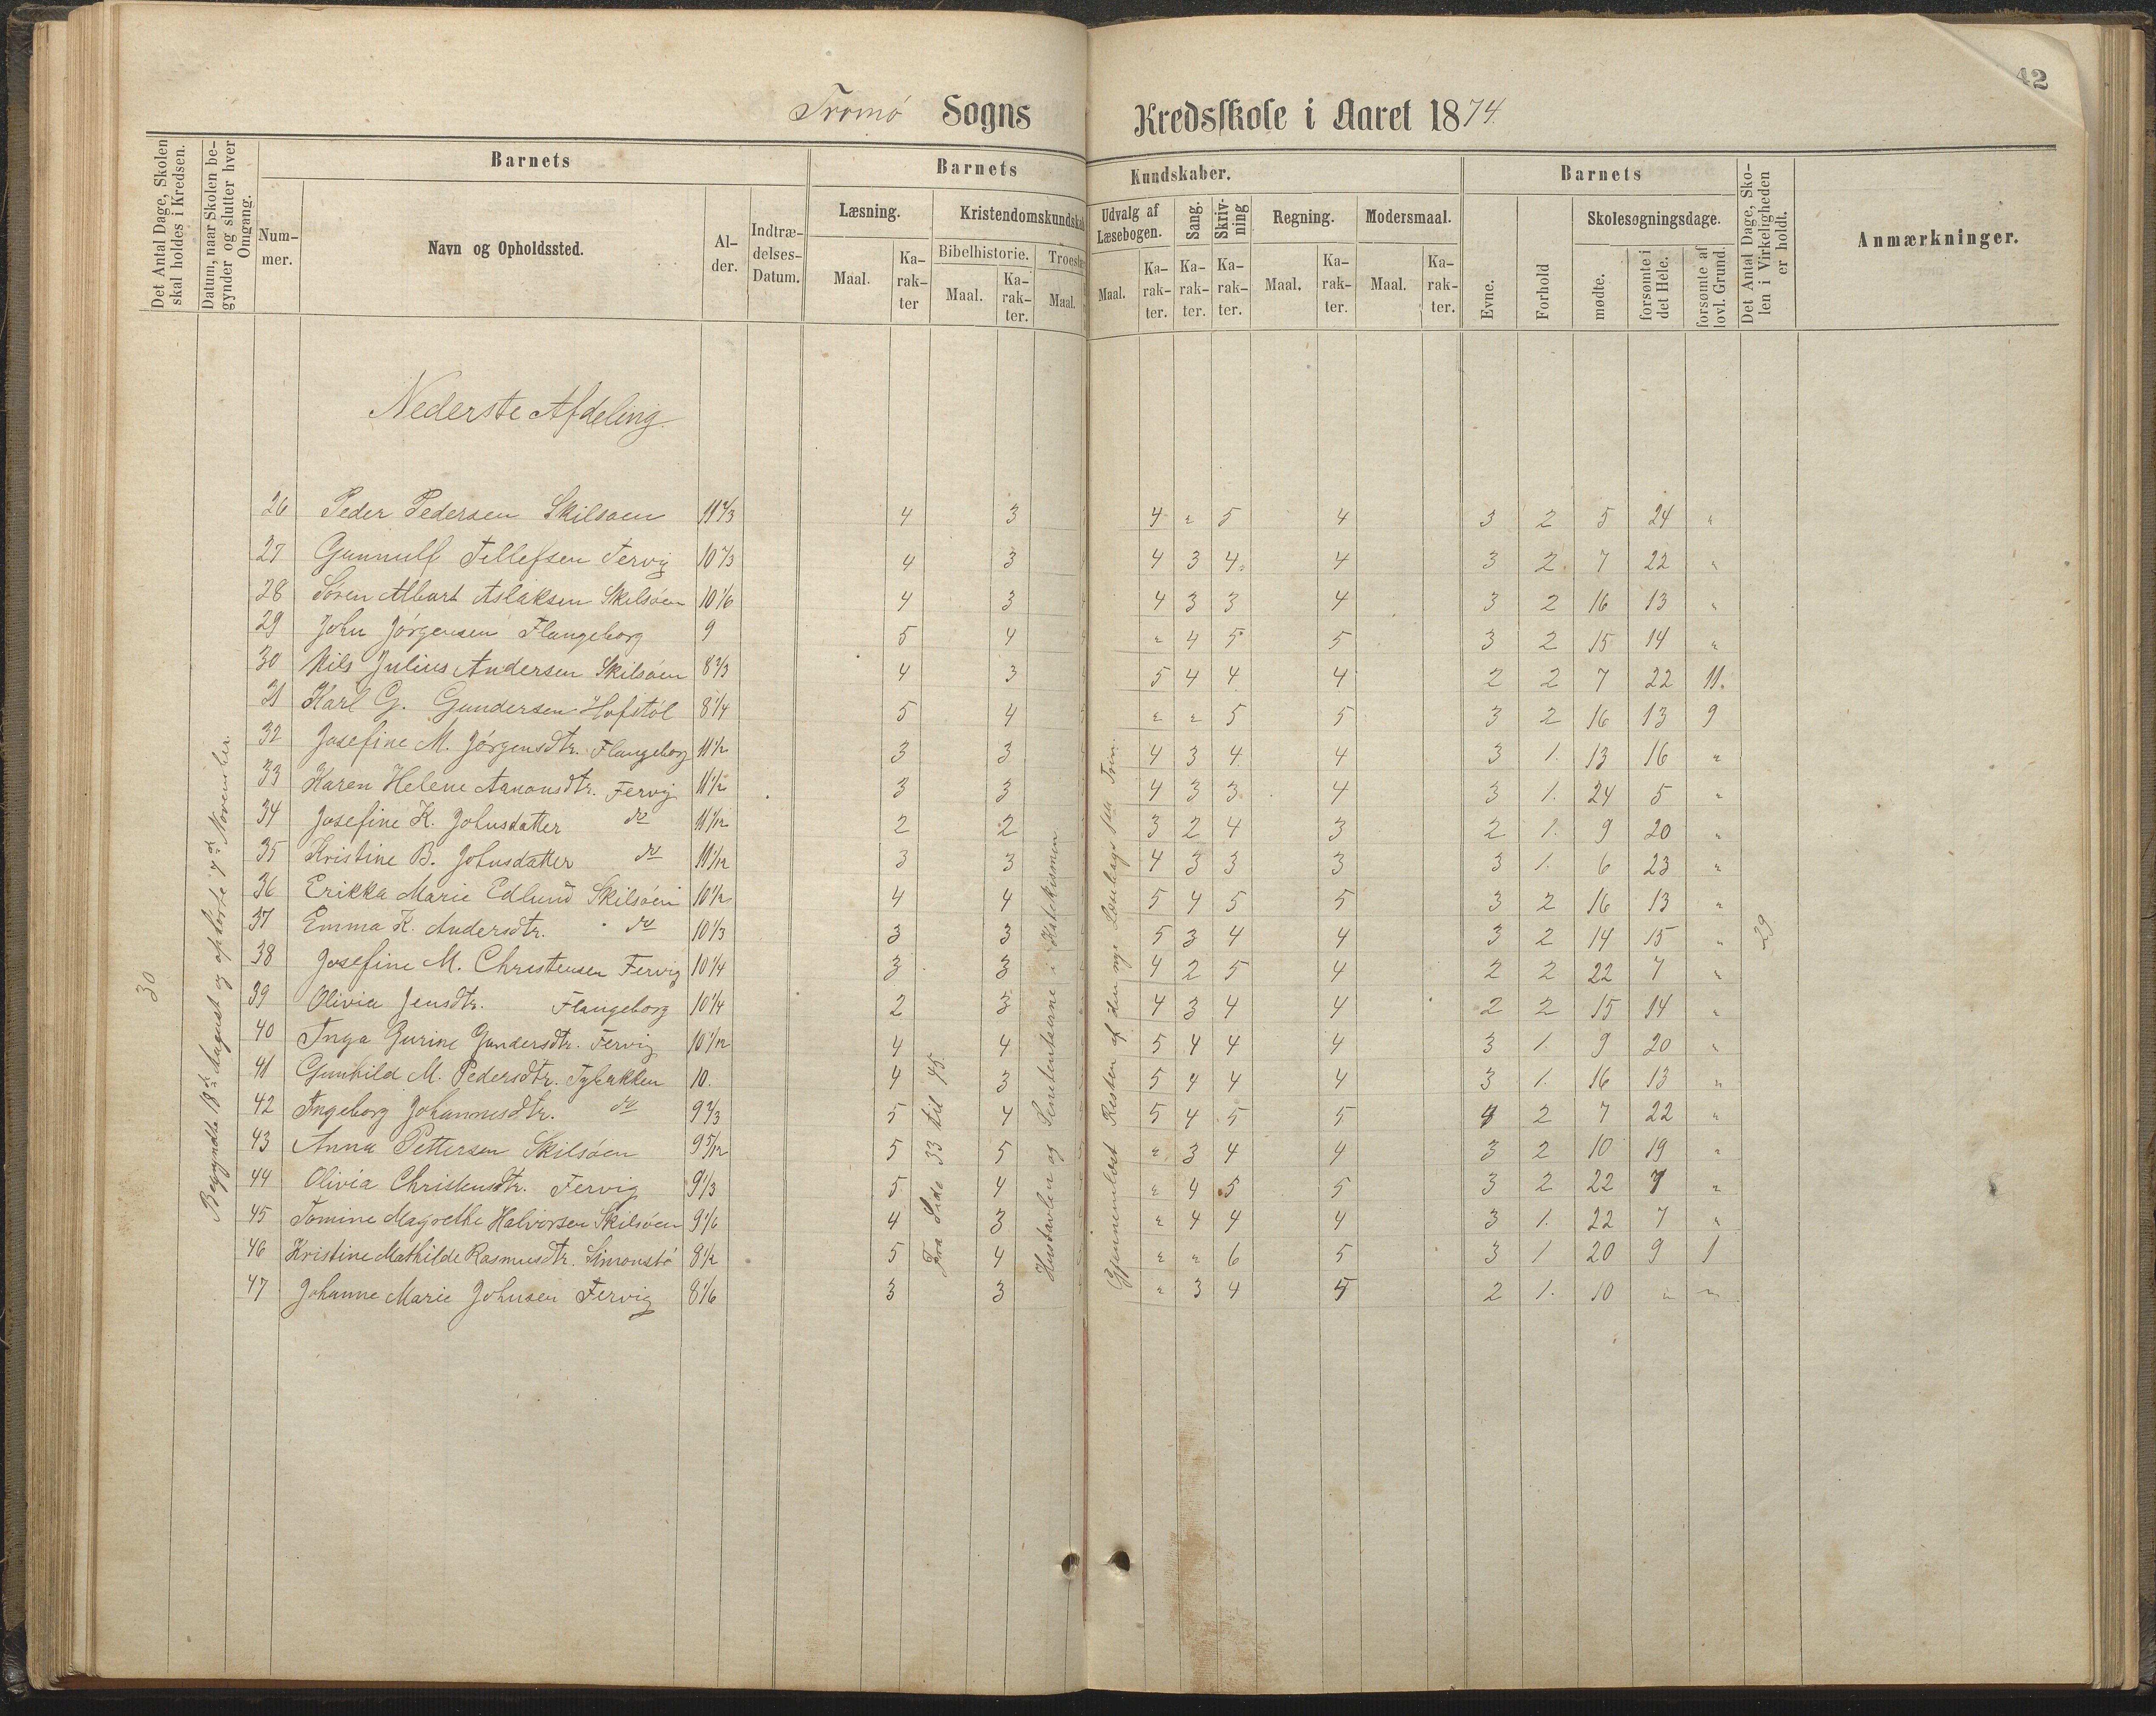 42
Tromø Sogns Kredsskole i Aaret 1874.
Det Antal Dage, Skolen skal holdes i Kredsen.
Datum, naar Skolen begynder og slutter hver Omgang.
Barnets
Num-
mer.
Navn og Opholdssted.
Al-
der.
Indtræ-
delses-
Datum.
Barnets Kundskaber.
Læsning.
Maal.
Ka-
rak-
ter
Kristendomskundskab
Bibelhistorie.
Maal.
Ka-
rak-
ter.
Troeslæ
Maal.
Udvalg af
Læsebogen.
Maal.
Ka-
rak-
ter.
Sang.
Ka-
rak-
ter.
Skriv-
ning
Ka-
rak-
ter.
Regning.
Maal.
Ka-
rak-
ter.
Modersmaal.
Maal.
Ka-
rak-
ter.
Barnets
Evne.
Forhold
Skolesøgningsdage.
mødte.
forsømte i
det Hele.
forsømte af
lovl. Grund.
Det Antal Dage, Sko-
len i Virkeligheden
er holdt.
Anmærkninger.
Nederste Afdeling
26 Peder Pedersen Skilsøen 11 2/3 4 3 4 " 5 4 3 2 5 24 "
27 Gunnulf Tellefsen Fervig 10 2/3 4 3 4 3 4. 4 3 2. 7 22 "
28 Søren Albert Aslaksen Skilsøen 10 1/6 4 3 4 3 3 4 3 2 16 13 "
29 John Jörgensen Flangeborg 9 5 4 " 4 5 5 3 2 15 14 "
30 Nils Julius Andersen Skilsøen 8 2/3 4 3 5 4 4 4 2 2 7 22 11.
31 Karl G. Gundersen Hofstöl 8 1/4 5 4 " " 5 5 3 2 16 13 9
32 Josefine M. Jörgensdtr. Flangeborg 11 1/2 3 3 4 3 4 4 3 1. 13 16 "
33 Karen Helene Aanonsdtr. Fervig 11 1/2 3 3 4 3 3 4 3 1. 24 5 "
34 Josefine K. Johnsdatter do 11 1/12 2 2 3 2 4 3 2 1. 9 20 "
35 Kristine B. Johnsdatter do 11 1/12 3 3 4 3 3 3 3 1. 6 23 "
36 Erikka Marie Edlund Skilsøen 10 1/2 4 4 5 4 5 5 3 2 16 13 "
37 Emma K. Andersdtr. do 10 1/3 3 3 5 3 4 4 3 2 14 15 "
38 Josefine M. Christensen Fervig 10 1/4 3 3 4 2 5 4 2 2 22 7 "
39 Olivia Jensdtr. Flangeborg 10 1/4 2 3 4 3 4 4 2 2 15 14 "
40 Inga Gurine Gundersdtr. Fervig 10 1/12 4 4 5 4 4 4 3 1. 9 20 "
41 Gunhild M. Pedersdtr. Tybakken 10. 4 3 5 4 4 4 3 1. 16 13 "
42 Ingeborg Johannesdtr. do 9 2/3 5 4 5 4 5 5 4 2 7 22 "
43 Anna Pettersen Skilsøen 9 5/12 5 5 " 3 4 4 3 2 10 19 "
44 Olivia Christensdtr. Fervig 9 1/3 5 4 " 4 5 5 3 2 22 7 "
45 Tomine Magrethe Halvorsen Skilsøen 9 1/6 4 3 " 4 4 4 3 1. 22 7 "
46 Kristine Mathilde Rasmusdtr. Simonstø 8 1/2 5 4 " " 6 5 3 1 20 9 1
47 Johanne Marie Johnsen Fervig 8 1/6 3 3 " 3 4 5 2 1. 10 " "
30
Begyndte 18de August og ophørte 7de November.
Fra Side 33 til 45.
Hustavlen og Sententserne i Katekismen
Gjennemlæst Resten af den nye
29